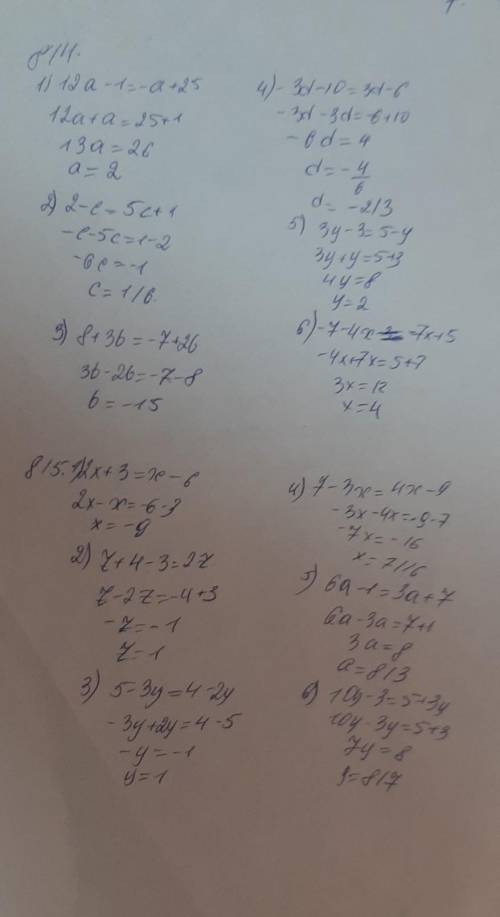 814.
1) 12a - 1 = -a + 25
12a + a = 25 + 1
13a = 26
a = 2
2) 2 - c = 5c + 1
-c - 5c = 1 - 2
-6c = -1
c = 1/6.
3) 8 + 3b = -7 + 2b
3b - 2b = -7 - 8
b = -15
4) - 3d - 10 = 3d - 6
- 3d - 3d = -6 + 10
- 6d = 4
d = - 4/6
d = -2/3
5) 3y - 3 = 5 - y
3y + y = 5 + 3
4y = 8
y = 2
6) -7 - 4x = -7x + 5
-4x + 7x = 5 + 7
3x = 12
x = 4
815. 1) 2x + 3 = x - 6
2x - x = -6 - 3
x = -9
2) z + 4 - 3 = 2z
z - 2z = -4 + 3
- z = -1
z = 1
3) 5 - 3y = 4 - 2y
- 3y + 2y = 4 - 5
- y = -1
y = 1
4) 7 - 3x = 4x - 9
- 3x - 4x = -9 - 7
- 7x = -16
x = 7/16
5) 6a - 1 = 3a + 7
6a - 3a = 7 + 1
3a = 8
a = 8/3
6) 10y - 3 = 5 + 3y
10y - 3y = 5 + 3
7y = 8
y = 8/7